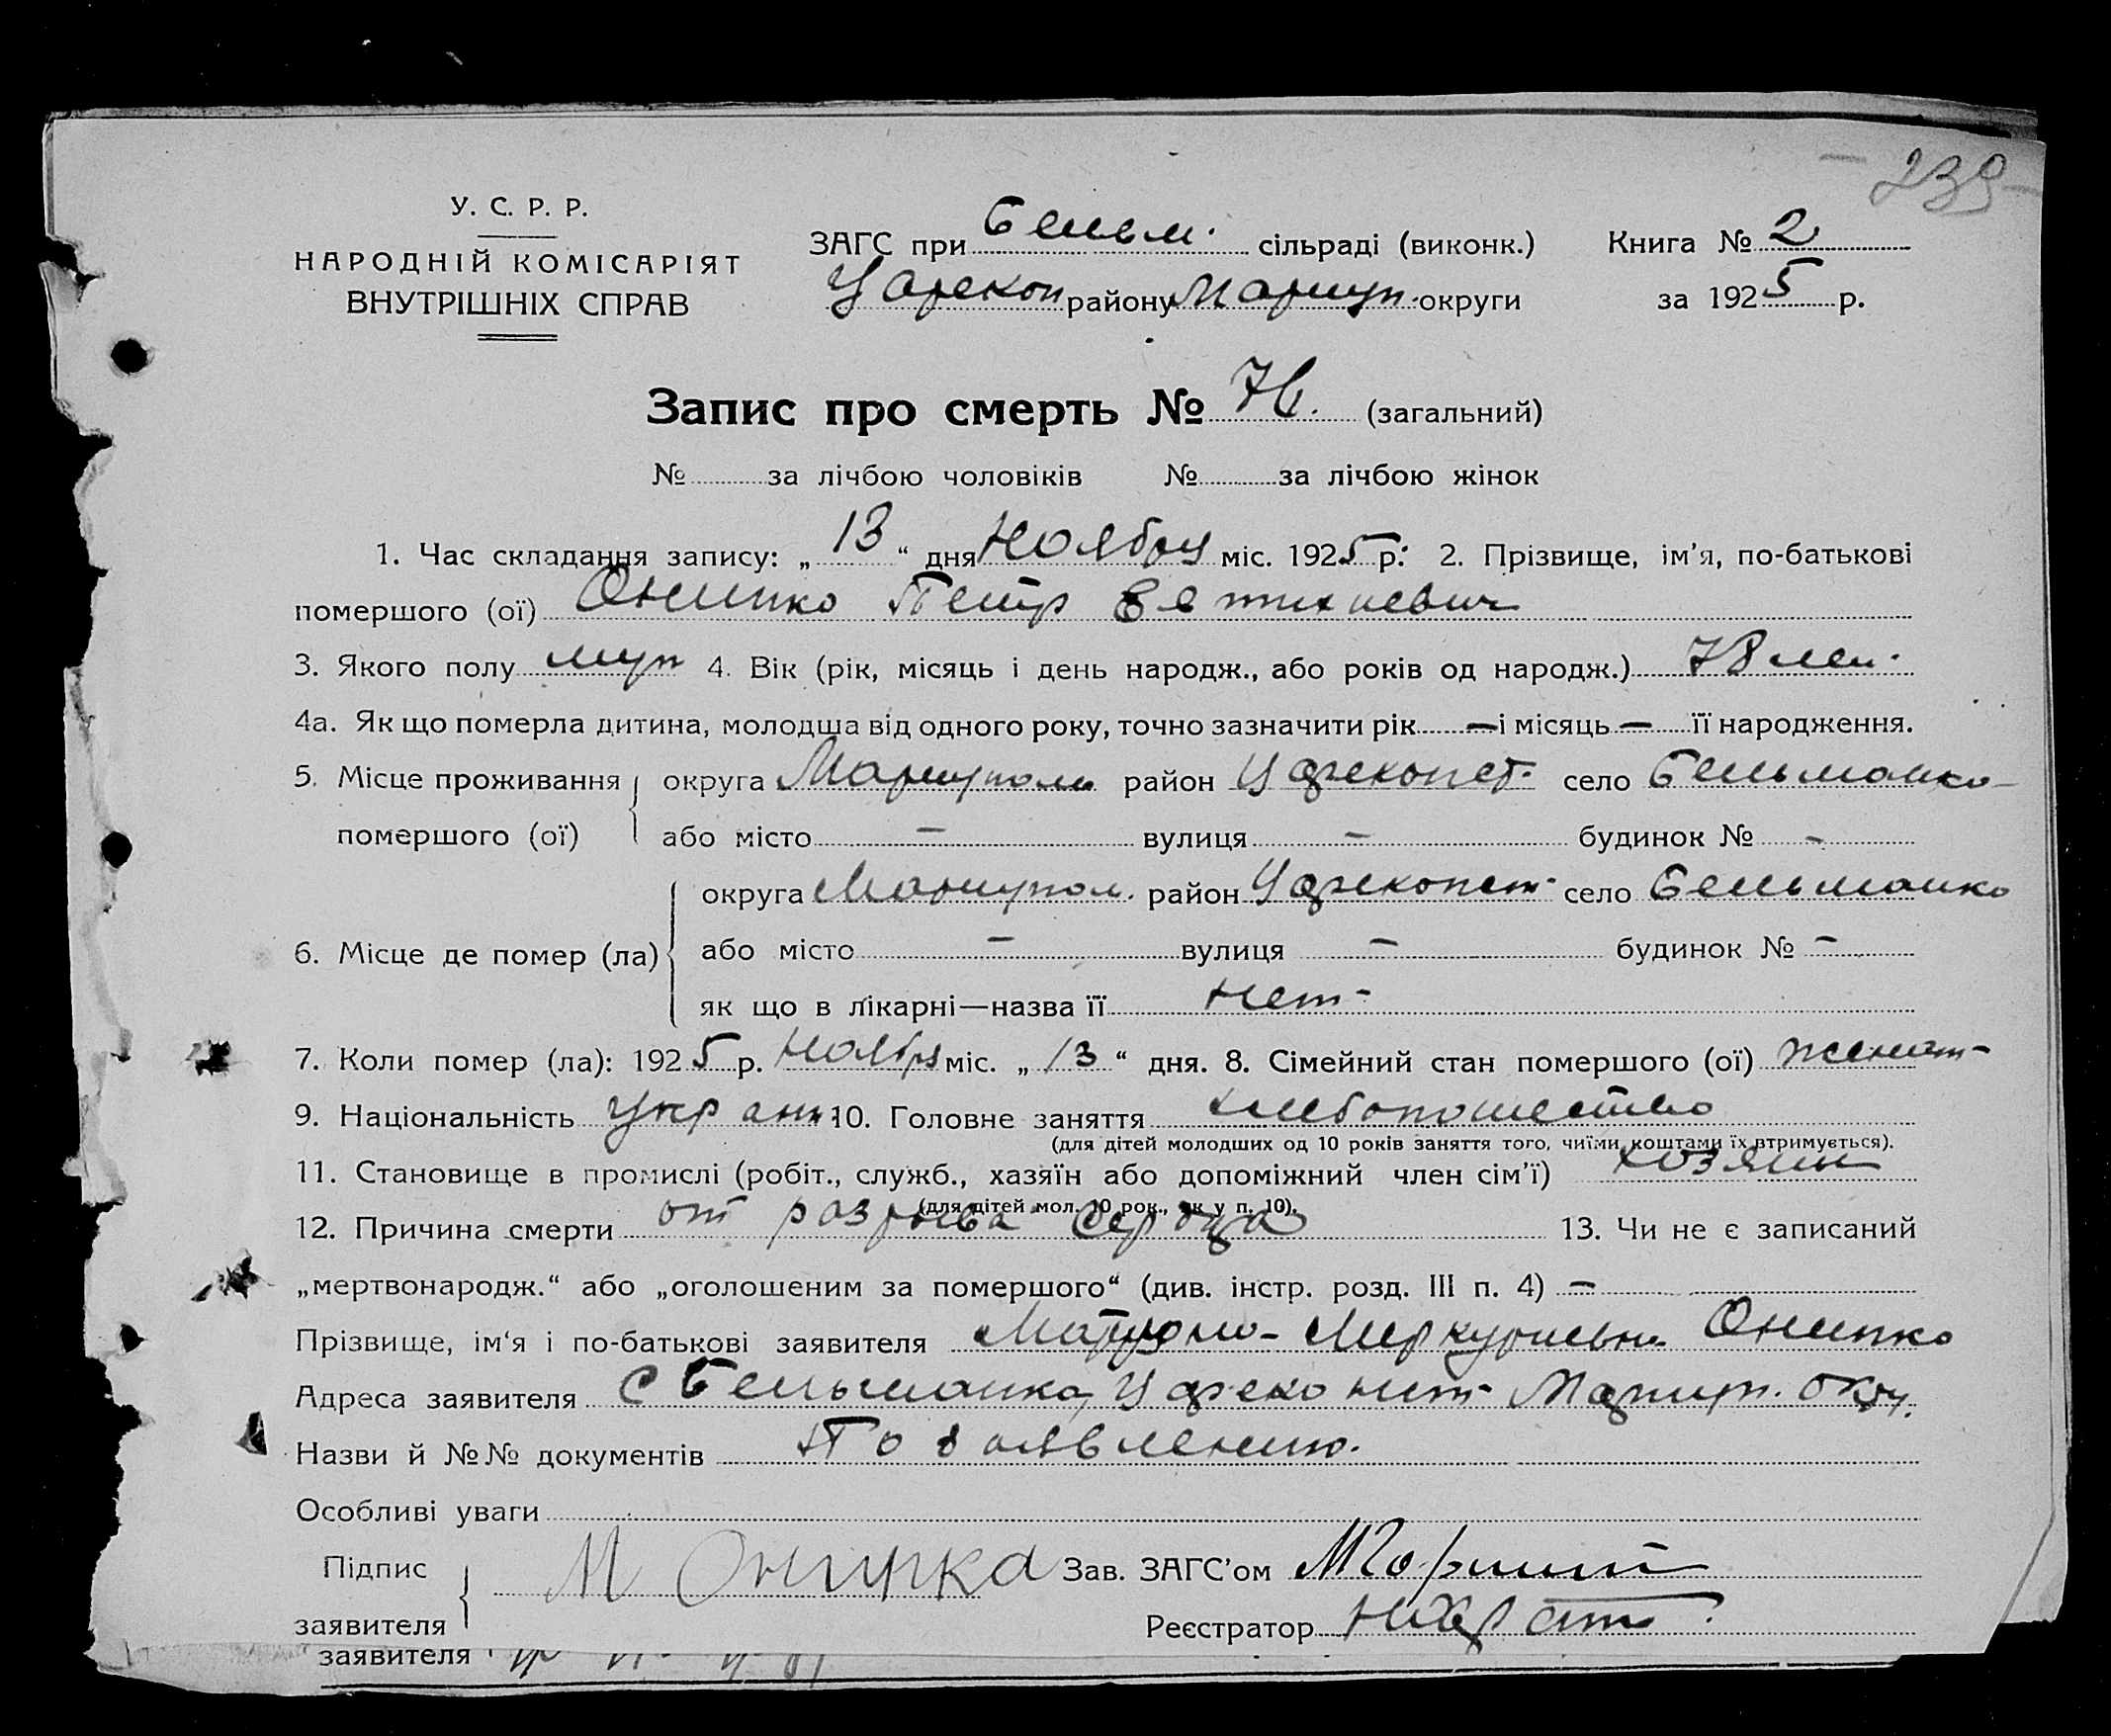 239
У. С. Р. Р.
НАРОДНІЙ КОМІСАРІЯТ
ВНУТРІШНІХ СПРАВ
ЗАГС при Бельм. сільраді (виконк.)
Царекон району Мариуп. округи
Книга № 2
за 1925 р.
Запис про смерть № 76. (загальний)
№ за лічбою чоловіків № за лічбою жінок
1. Час складання запису: „13“ дня Ноября міс. 1925 р. 2. Прізвище, ім’я, по-батькові
помершого (ої) Онипко Петр Евтихиевич
3. Якого полу муп 4. Вік (рік, місяць і день народж., або років од народж.) 78 лет.
4а. Як що померла дитина, молодша від одного року, точно зазначити рік — і місяць — її народження.
5. Місце проживання помершого (ої) округа Мариуполь район Цареконст. село Бельманка
або місто — вулиця — будинок № -
6. Місце де помер (ла) округа Мариупол. район Цареконст. село Бельманка
або місто — вулиця — будинок № -
як що в лікарні—назва її нет-
7. Коли помер (ла): 1925 р. Ноября міс. „13“ дня. 8. Сімейний стан помершого (ої) женат-
9. Національність Украин 10. Головне заняття хлебопашество
(для дітей молодших од 10 років заняття того, чиїми коштами їх втримується).
11. Становище в промислі (робіт., служб., хазяїн або допоміжний член сім’ї) хозяин
(для дітей мол. 10 рок., як у п. 10).
12. Причина смерти от разрыва сердца 13. Чи не є записаний
„мертвонародж.“ або „оголошеним за помершого“ (див. інстр. розд. III п. 4) —
Прізвище, ім‘я і по-батькові заявителя Матрона Меркурьевна Онипко
Адреса заявителя с Бельманка, Цареконст- Мариуп. окр.
Назви й №№ документів По заявлению.
Особливі уваги
Підпис заявителя М Онипка Зав. ЗАГС’ом
Реєстратор
заявителя